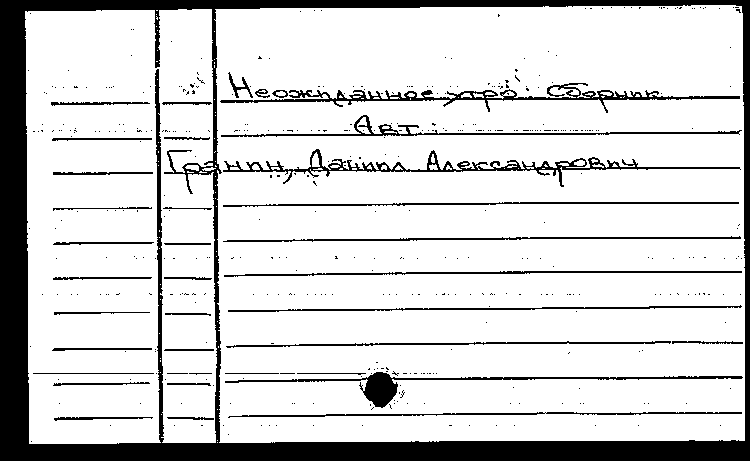 Неожиданное утро: Сборник
Авт.:
Гранин, Даниил Александрович